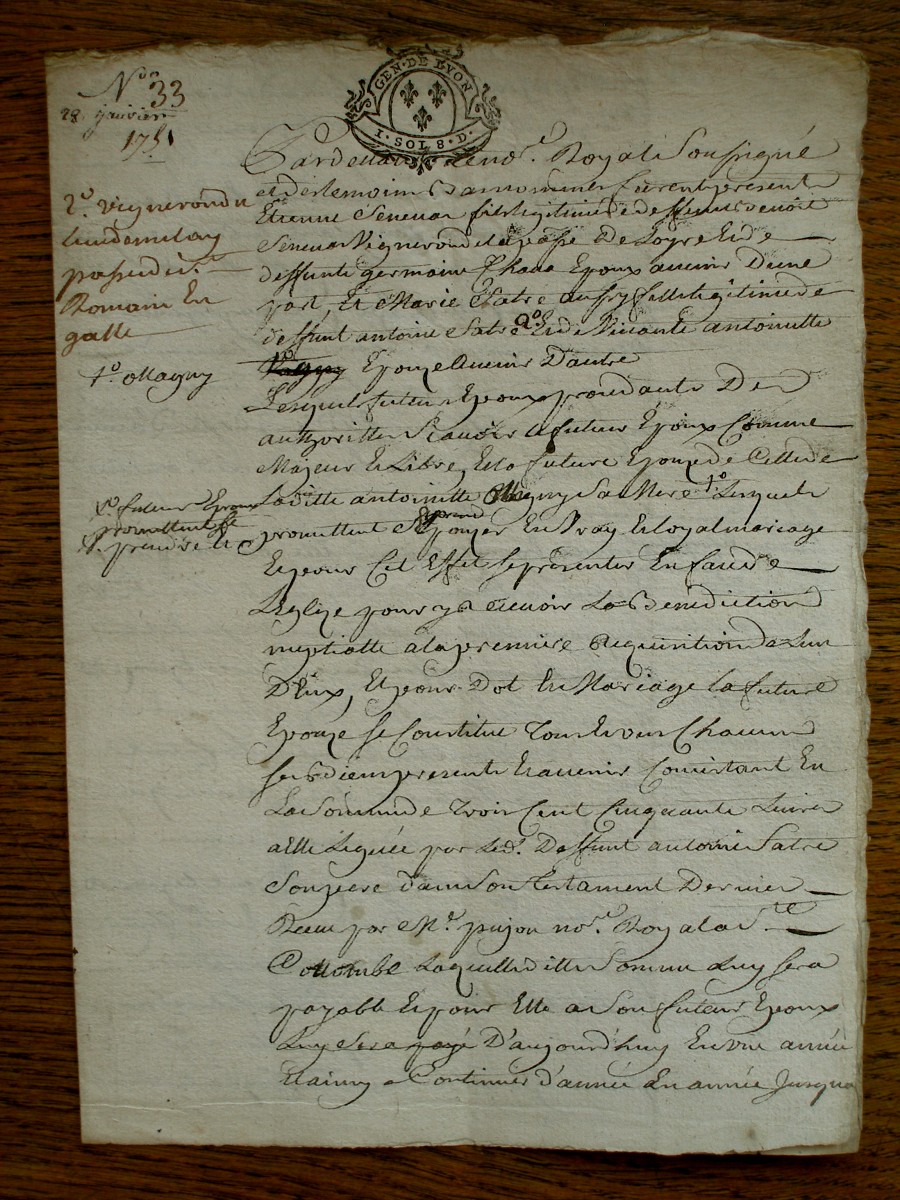 GEN·DE LYON
I·SOL 8·D·
N° 33
28 janvier
1751
Par devant le no.re Royal Soussigné
et des temoins bas nommes furent present
Etienne Seneuar fils legitime de deffunt benoit
Seneuar Vigneron de la passe De Loyre Et de
deffunte germaine Epoux avenir Dune
part, Et Marie Satre aussy fille legitime de
deffunt antoine Satre 2° Et de Vivante antoinette
Magny Epouze Avenir Dautre
Lesquels futurs Epoux procedants De
authoritté Scavoir le futur Epoux Comme
Majeur Et Libre, Et la future Epouze de Celle de
Laditte antoinette Magny Sa Mere 1° Lesquels
promettent Se prend Epouzer En Vray Et loyal mariage
Et pour Cet Effet Se presenter En face de
LEglize pour y recevoir La Benediction
nuptialle a la premiere requisition de Lun
DEux, Et pour Dot En Mariage la future
Epouze Se Constitue Tous Et uns Chacuns
ses biens presents Et avenir Consistant En
La Somme de Trois Cent Cinquante Livres
a Elle Leguée par Led. Deffunt antoine Satre
Son pere dans Son Testament Dernier
Recu par M.e pujon no.re Royal a S.te
Collombe Laquelle ditte Somme Luy sera
payable Et pour Elle a Son futur Epoux
Luy Sera payé D'aujourd'huy En une année
Et ainsy a Continuer d'année En année Jusqua
2° vigneron
passe de S.t
Romain En
galle
1° Magny
S.d futurs Epoux
promettent Se
prendre Et